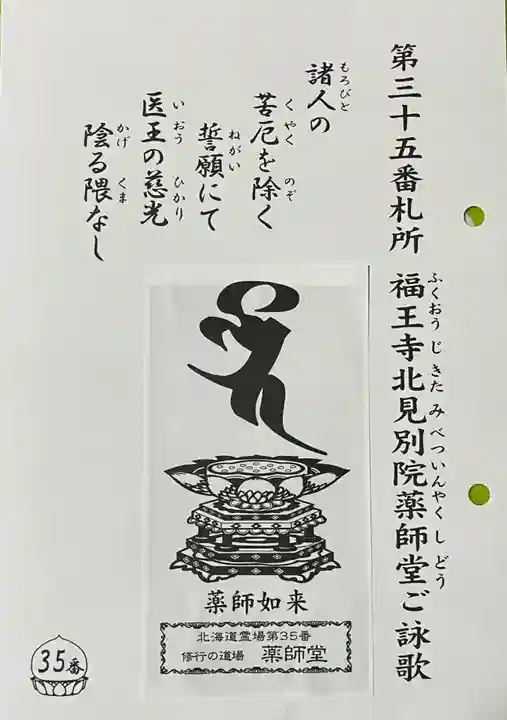 第三十五番札所 福王寺北見別院薬師堂ご詠歌
ふくおうじきたみべついんやくしどう
諸人の
もろびと
苦厄を除く
くやく のぞ
誓願にて
ねがい
医王の慈光
いおう ひかり
陰る隈なし
かげ くま
薬師如来
北海道霊場第35番
修行の道場 薬師堂
35番